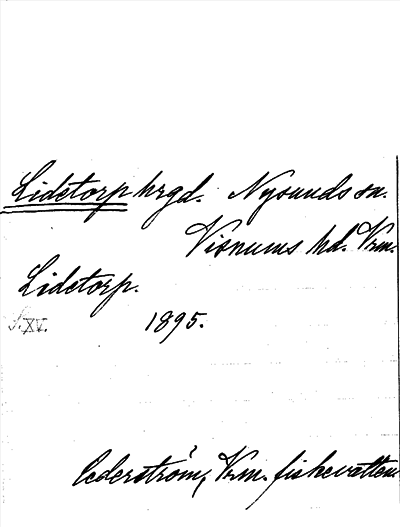 Lidetorp hrgd. Nysunds sn.
Visnums hd. Vrm.
Lidetorp.
S. XV. 1895.
Cederström, Vrm. fiskevatten